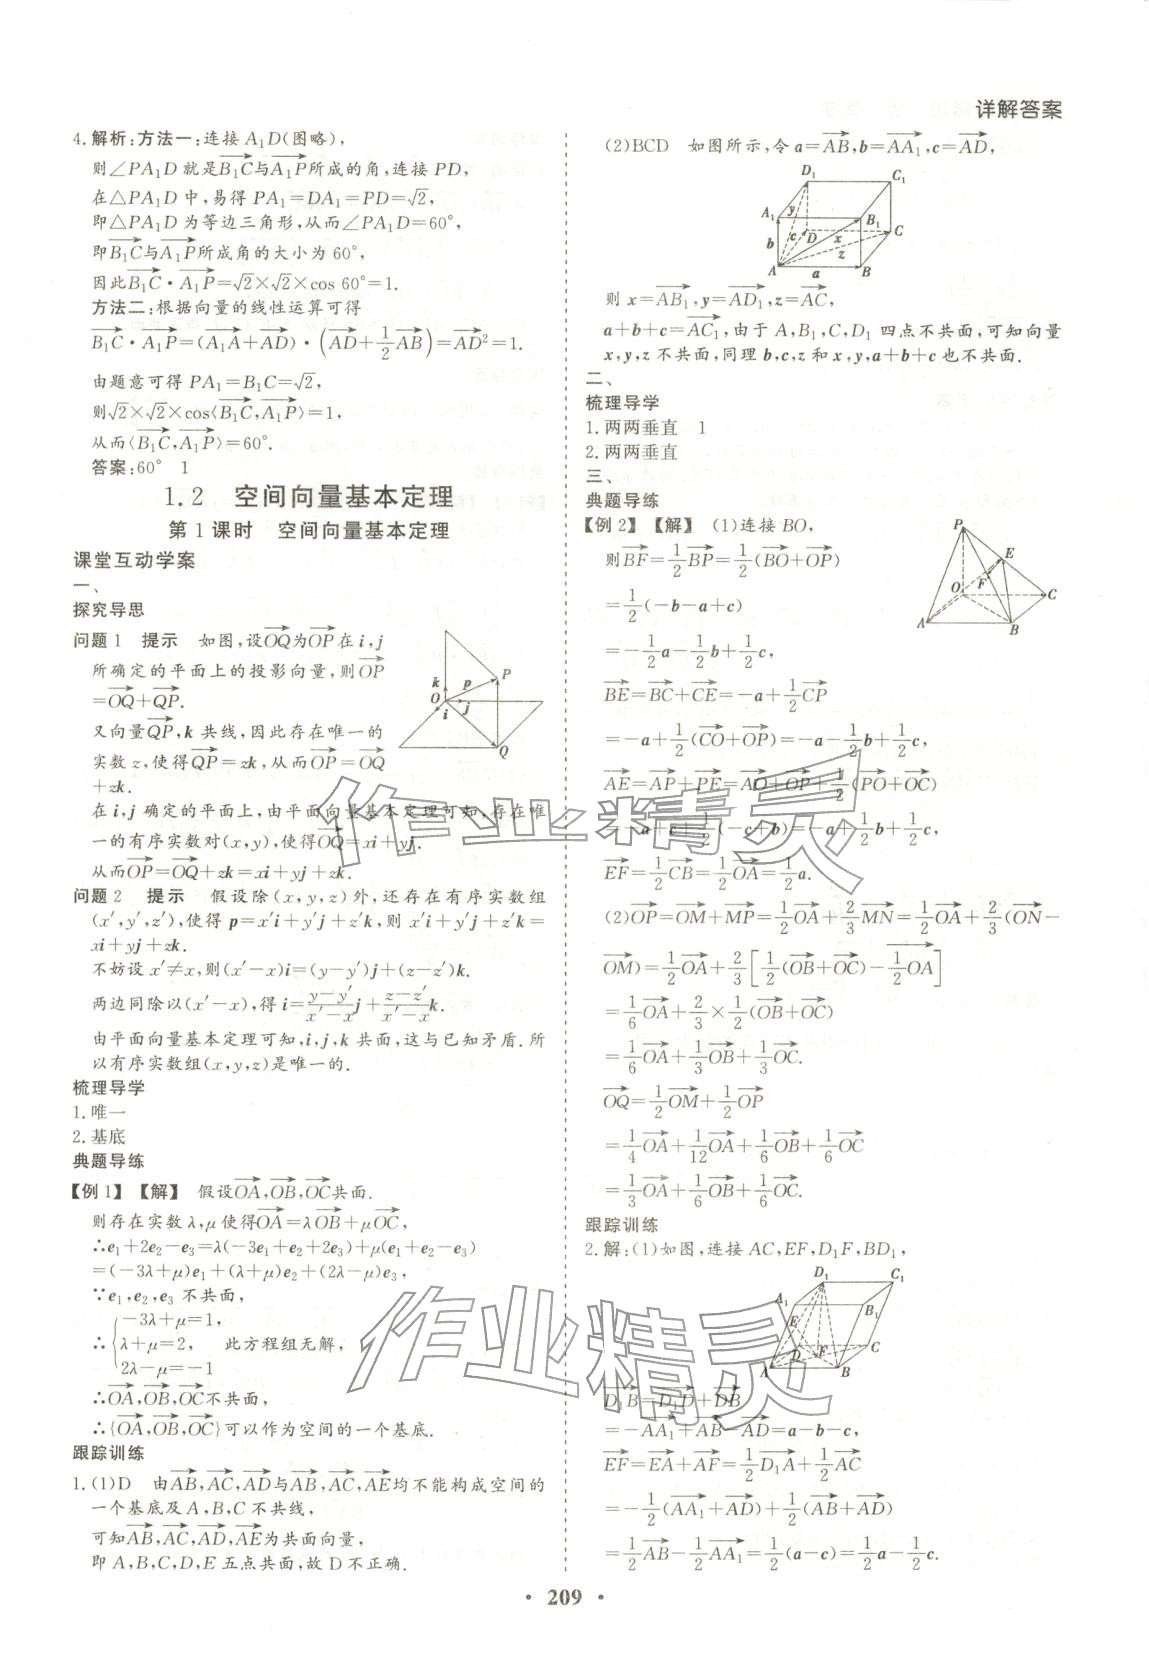 详解答案
4.解析:方法一:连接A₁D(图略),
则∠PA₁D就是B₁C与A₁P所成的角,连接PD,
在△PA₁D中,易得PA₁=DA₁=PD=√2,
即△PA₁D为等边三角形,从而∠PA₁D=60°,
即B₁C与A₁P所成角的大小为60°,
因此B₁C·A₁P=√2×√2×cos 60°=1.
方法二:根据向量的线性运算可得
B₁C·A₁P=(A₁A+AD)·(AD+1/2AB)=AD²=1.
由题意可得PA₁=B₁C=√2,
则√2×√2×cos⟨B₁C,A₁P⟩=1,
从而⟨B₁C,A₁P⟩=60°.
答案:60° 1
1.2 空间向量基本定理
第1课时 空间向量基本定理
课堂互动学案
一、
探究导思
问题1 提示 如图,设OQ为OP在i,j
所确定的平面上的投影向量,则OP
=OQ+QP.
又向量QP,k共线,因此存在唯一的
实数z,使得QP=zk,从而OP=OQ
+zk.
在i,j确定的平面上,由平面向量基本定理可知,存在唯
一的有序实数对(x,y),使得OQ=xi+yj.
从而OP=OQ+zk=xi+yj+zk.
k
p
P
O
i
j
Q
问题2 提示 假设除(x,y,z)外,还存在有序实数组
(x′,y′,z′),使得p=x′i+y′j+z′k,则x′i+y′j+z′k=
xi+yj+zk.
不妨设x′≠x,则(x′-x)i=(y-y′)j+(z-z′)k.
两边同除以(x′-x),得i=(y-y′)/(x′-x)j+(z-z′)/(x′-x)k.
由平面向量基本定理可知,i,j,k共面,这与已知矛盾.所
以有序实数组(x,y,z)是唯一的.
梳理导学
1.唯一
2.基底
典题导练
【例1】【解】 假设OA,OB,OC共面.
则存在实数λ,μ使得OA=λOB+μOC,
∴e₁+2e₂-e₃=λ(-3e₁+e₂+2e₃)+μ(e₁+e₂-e₃)
=(-3λ+μ)e₁+(λ+μ)e₂+(2λ-μ)e₃,
∵e₁,e₂,e₃不共面,
-3λ+μ=1,
∴{λ+μ=2, 此方程组无解,
2λ-μ=-1
∴OA,OB,OC不共面,
∴{OA,OB,OC}可以作为空间的一个基底.
跟踪训练
1.(1)D 由AB,AC,AD与AB,AC,AE均不能构成空间的
一个基底及A,B,C不共线,
可知AB,AC,AD,AE为共面向量,
即A,B,C,D,E五点共面,故D不正确.
(2)BCD 如图所示,令a=AB,b=AA₁,c=AD,
D₁
C₁
A₁
y
B₁
b
c
D
x
C
z
A
a
B
则x=AB₁,y=AD₁,z=AC,
a+b+c=AC₁,由于A,B₁,C,D₁四点不共面,可知向量
x,y,z不共面,同理b,c,z和x,y,a+b+c也不共面.
二、
梳理导学
1.两两垂直 1
2.两两垂直
三、
典题导练
【例2】【解】 (1)连接BO,
则BF=1/2BP=1/2(BO+OP)
=1/2(-b-a+c)
=-1/2a-1/2b+1/2c,
BE=BC+CE=-a+1/2CP
=-a+1/2(CO+OP)=-a-1/2b+1/2c,
AE=AP+PE=AO+OP+1/2(PO+OC)
=-a+c+1/2(-c+b)=-a+1/2b+1/2c,
EF=1/2CB=1/2OA=1/2a.
P
E
O
F
C
A
B
(2)OP=OM+MP=1/2OA+2/3MN=1/2OA+2/3(ON-
OM)=1/2OA+2/3[1/2(OB+OC)-1/2OA]
=1/6OA+2/3×1/2(OB+OC)
=1/6OA+1/3OB+1/3OC.
OQ=1/2OM+1/2OP
=1/4OA+1/12OA+1/6OB+1/6OC
=1/3OA+1/6OB+1/6OC.
跟踪训练
2.解:(1)如图,连接AC,EF,D₁F,BD₁,
D₁
C₁
A₁
B₁
E
C
D
F
A
B
D₁B=D₁D+DB
=-AA₁+AB-AD=a-b-c,
EF=EA+AF=1/2D₁A+1/2AC
=-1/2(AA₁+AD)+1/2(AB+AD)
=1/2AB-1/2AA₁=1/2(a-c)=1/2a-1/2c.
作业精灵
作业精灵
· 209 ·